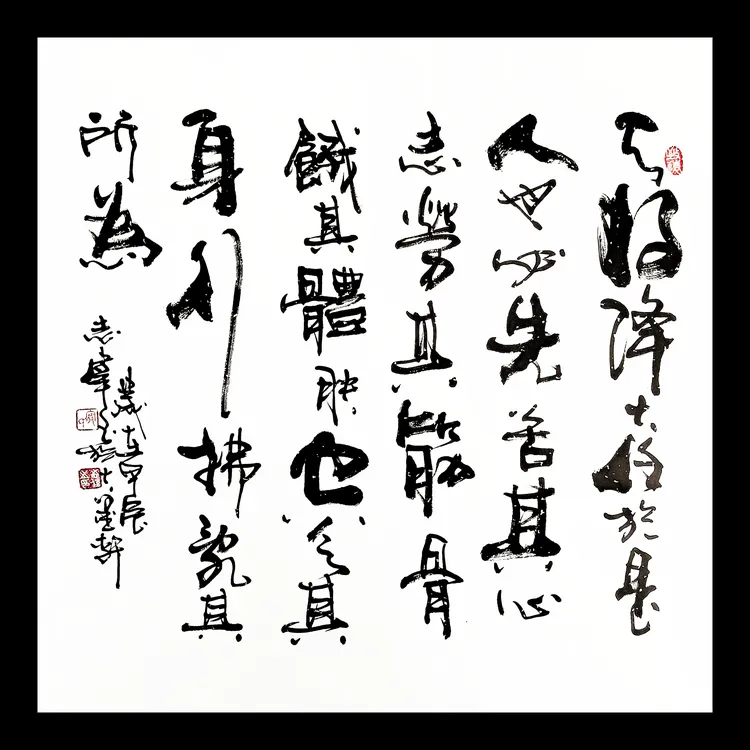 天将降大任於是
人也必先苦其心
志勞其筋骨
餓其體肤空乏其
身行拂亂其
所為
歲在甲辰
志峯书於大墨軒